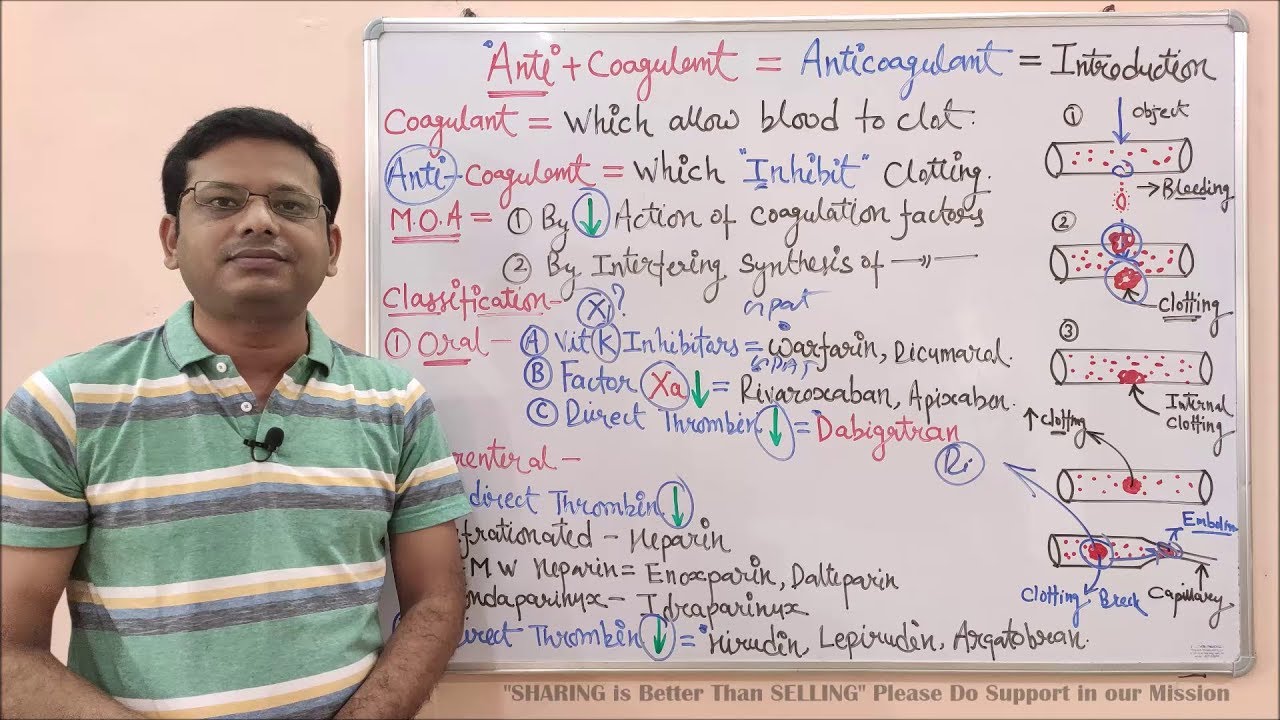 Anti + Coagulemt = Anticoagulant = Introduction
Coagulant = Which allow blood to clot.
Anti-Coagulemt = Which "Inhibit" Clotting.
M.O.A = ① By ↓ Action of coagulation factors
② By Interfering Synthesis of —〃—
Classification - X?
① Oral - Ⓐ Vit K Inhibitars = Warfarin, Dicumarol.
Ⓑ Factor Xa ↓ = Rivaroxaban, Apixabon.
Ⓒ Direct Thromben ↓ = Dabigatran
renteral -
direct Thromben ↓
frationated - Heparin
MW Heparin = Enoxparin, Dalteparin
ondaparinyx - Idraparinyx
irect Thromben ↓ = Hirudin, Lepirudin, Argatobran.
①
object
→ Bleeding
②
Clotting
③
Internal
Clotting
↑ Clotting
Ri
Clotting Breck
Capillary
"SHARING is Better Than SELLING" Please Do Support in our Mission